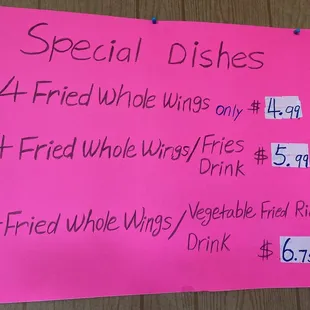 Special Dishes
4 Fried Whole Wings only $ 4.99
4 Fried Whole Wings/Fries
Drink $ 5.99
Fried Whole Wings/Vegetable Fried
Drink
$ 6.7